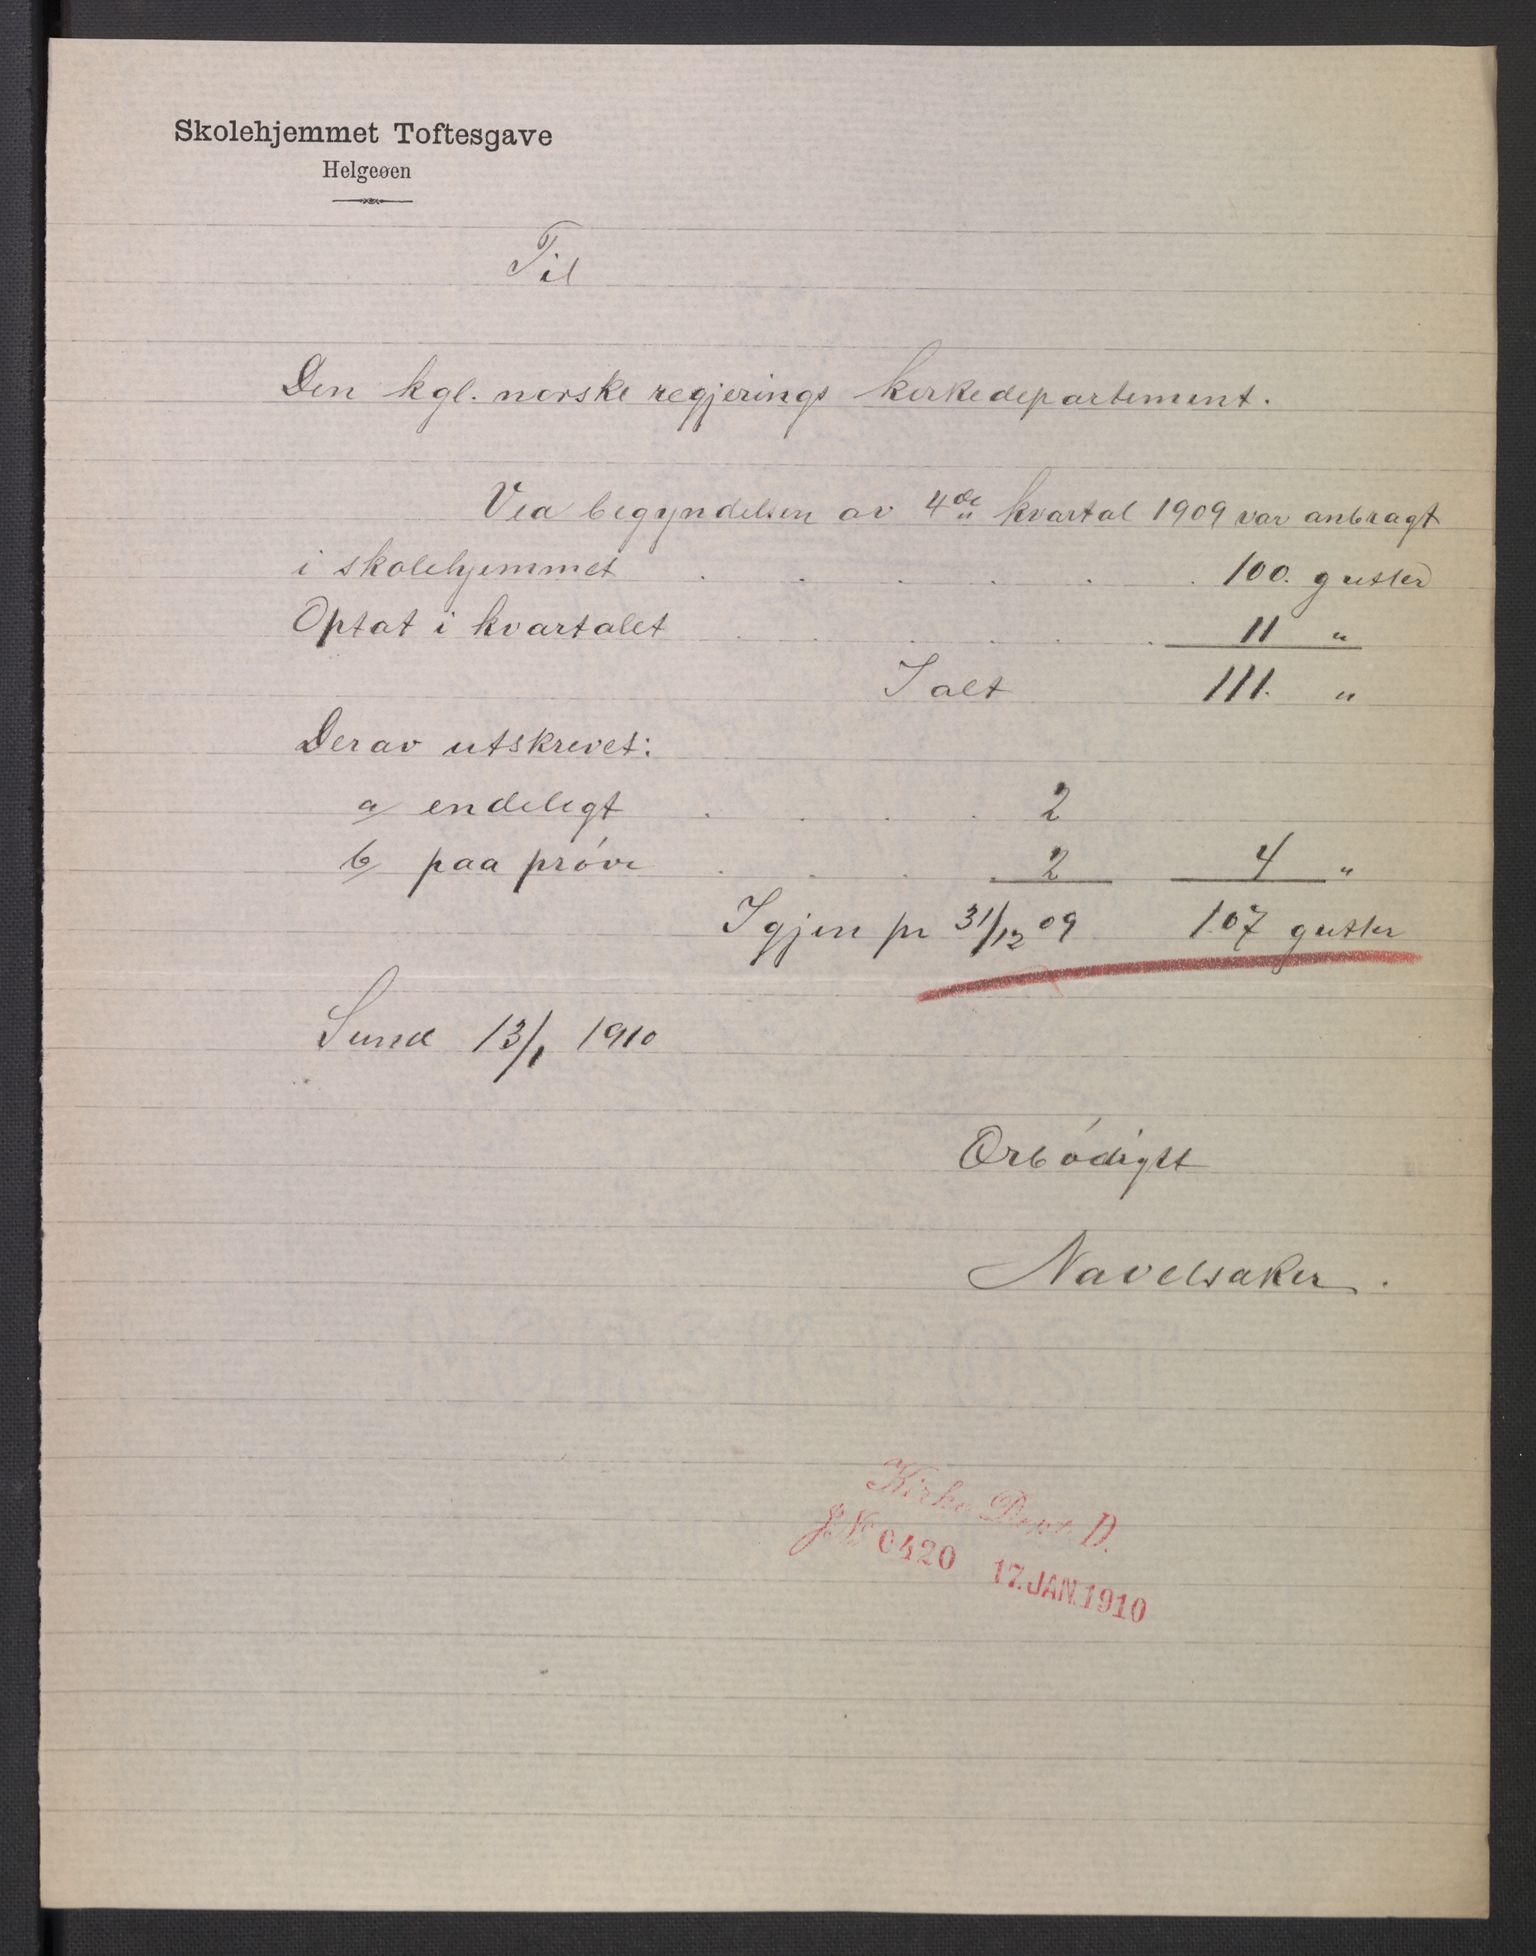 Skolehjemmet Toftesgave
Helgeøen
Til
Den kgl. norske regjerings kirkedepartement.
Ved begyndelsen av 4de kvartal 1909 var anbragt
i skolehjemmet . . . . . . 100. gutter
Optat i kvartalet . . . . . 11 "
I alt 111. "
Derav utskrevet:
a/ endeligt . . . . 2
b/ paa prøve . . . . 2 4 "
Igjen pr 31/12 09 107 gutter
Sund 13/1 1910
Ærbødigst
Navelsaker.
Kirke Dept. D.
J. № 0420 17. JAN. 1910